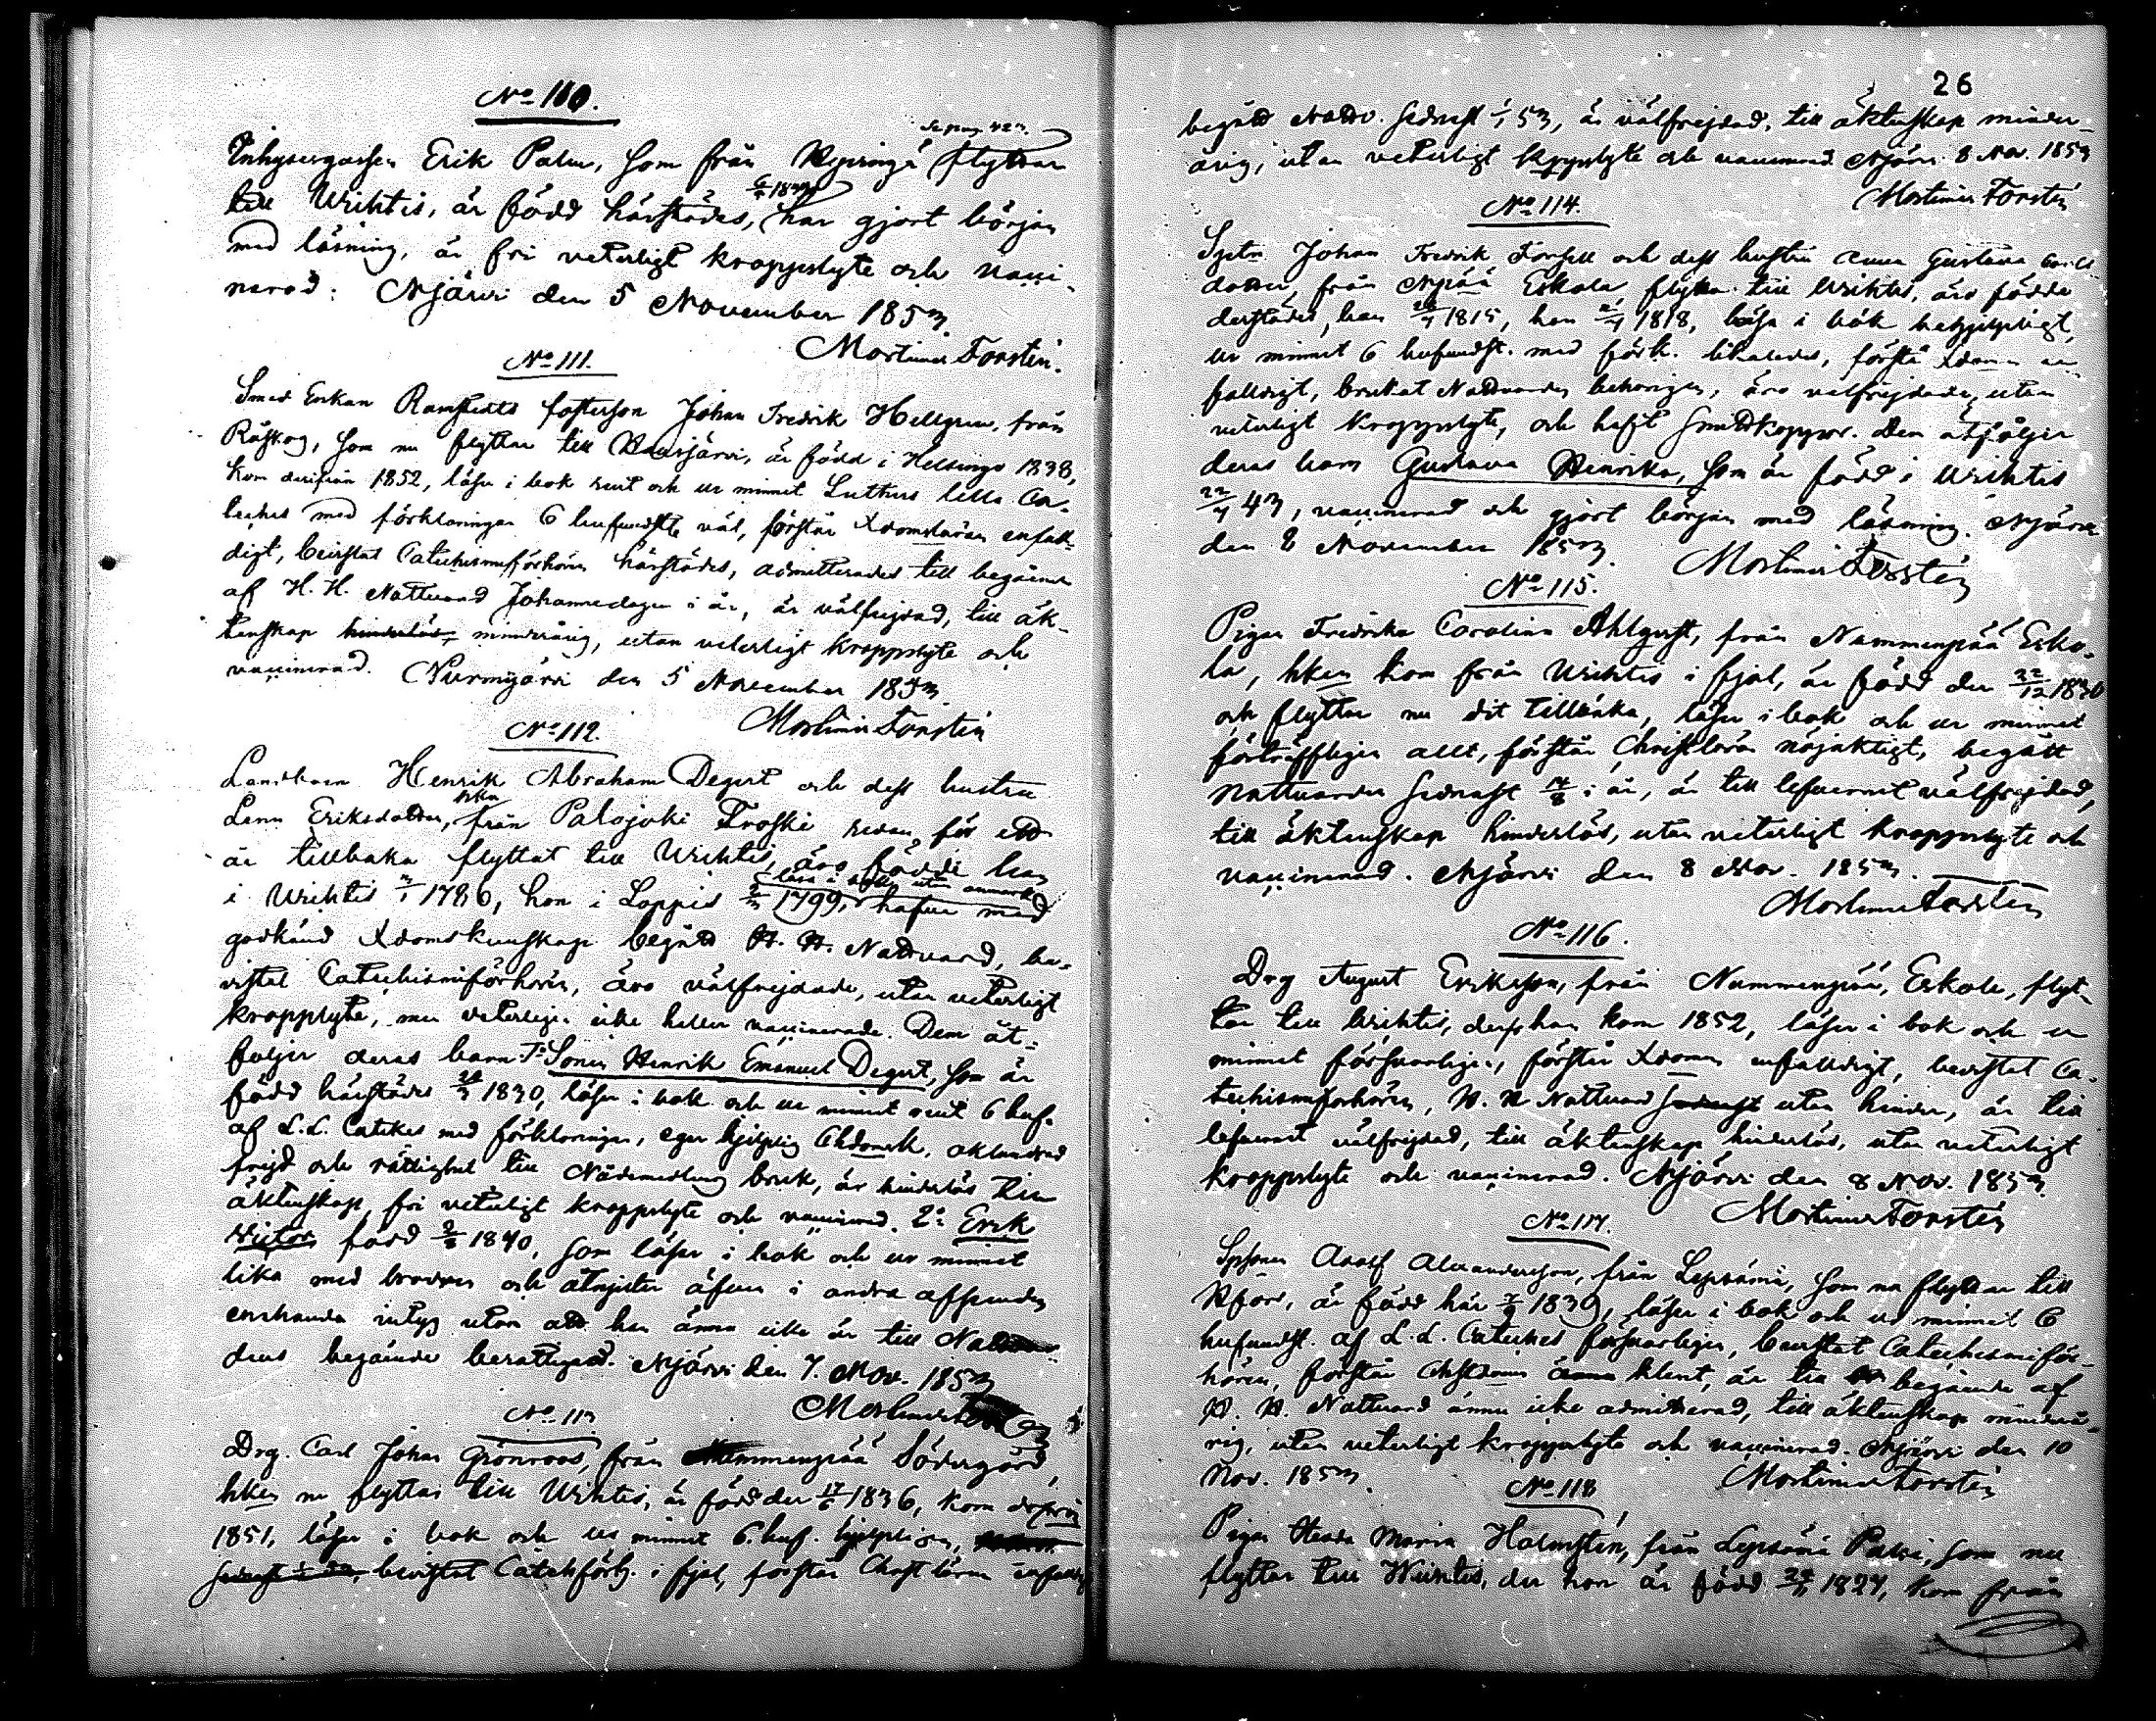 No 110.
Se pag. 423.
Inhysesgossen Erik Palm, som från flyttar
till Wichtis, är född härstädes, har gjort början
med läsning, är fri veterligt kroppslyte och vacci-
nerad. Njärvi den 5 November 1853.
Mortimer Forstén.
No 111.
Smed Enkan Ramstedts fosterson Johan Fredrik Hellgren, från
Råskog, som nu flyttar till Hausjärvi, är född i Helsinge 1838,
kom derifrån 1852, läser i bok rent och ur minnet Luthers lilla Ca-
teches med förklaringen 6 hufvudst väl, förstår Xdomsläran enfal-
digt, bevistat Catechismiförhören härstädes, admitterades till begående
af H. H. Nattvard Johannedagen i år, är välfrejdad, till äk-
tenskap hinderlös, minderårig, utan veterligt kroppslyte och
vaccinerad. Nurmijärvi den 5 November 1853.
Mortimer Forstén
No 112.
Landtbon Henrik Abraham Degert och dess hustru
Lena Eriksdotter, hka från Palojoki Froski redan för ett
år tillbaka flyttat till Wichtis, äro födde han
läsa i bok utan anmärkn
i Wichtis 1786, hon i Loppis 1799, hafva med
godkänd Xdomskunskap begått H. H. Nattvard, be-
vistat Catechismiförhören, äro välfrejdade, utan veterligt
kroppslyte, men veterligen icke heller vaccinerade. Dem åt-
följer deras barn 1o Sonen Henrik Emanuel Degert, som är
född härstädes 1830, läser i bok och ur minnet rent 6 huf.
af L. L. Cateches med förklaringen, eger hjelplig Chdomsk, oklandrad
frejd och rättighet till Nådemedlens bruk, är hinderlös till
äktenskap, fri veterligt kroppslyte och vaccinerad. 2o Erik
Victor född 1840, som läser i bok och ur minnet
lika med brodren och åtnjuter äfven i andra afseenden
enahanda intyg utom att han ännu icke är till Natt-
dens begående berättigad. Njärvi den 7. Nov. 1853
Mortimer Forstén
No 113
Drg. Carl Johan Grönroos, från Nummenpää Södergård,
hken nu flyttar till Wichtis, är född den 1836, kom derifrån
1851, läser i bok och ur minnet 6. huf. hjelpligen,
bevistat Catechförh. i fjol, förstår Christläran enfaldig
26
begått Nattv. sednast 53, är välfrejdad, till äktenskap minder-
årig, utan veterligt kroppslyte och vaccinerad. Njärvi 8 Nov. 1853
Mortimer Forstén
No 114.
Johan Fredrik Forsell och dess hustru Anna Gustava Carls
dotter från Npää Eskola flytta till Wichtis, äro födde
derstädes, han 1815, hon 1818, läsa i bok behjelpligt,
ur minnet 6 hufvudst. med förk. likaledes, förstå Xdomen en-
faldigt, brukat Nattvarden behörigen, äro välfrejdade, utan
veterligt kroppslyte, och haft smittkoppor. Dem åtföljer
deras barn Gustava Henrika, som är född i Wichtis
43, vaccinerad och gjort början med läsning. Njärvi
den 8 November 1853.
Mortimer Forstén
No 115.
Pigan Fredrika Carolina Ahlqvist, från Nummenpää Esko-
la, hken kom från Wichtis i fjol, är född den 22/12 1830
och flyttar nu dit tillbaka, läser i bok och ur minnet
förträffligen allt, förstår Christläran nöjaktigt, begått
Nattvarden sednast 14/8 i år, är till lefvernet välfrejdad,
till äktenskap hinderlös, utan veterligt kroppslyte och
vaccinerad. Njärvi den 8 Nov. 1853.
Mortimer Forstén
No 116.
Drg August Eriksson, från Nummenpää, Eskola, flyt-
tar till Wichtis, derifrån han kom 1852, läser i bok och ur
minnet försvarligen, förstår Xdomen enfaldigt, bevistat Ca-
techismiförhören, H. H. Nattvard sednast utan hinder, är till
lefvernet välfrejdad, till äktenskap hinderlös, utan veterligt
kroppslyte och vaccinerad. Njärvi den 8 Nov. 1853.
Mortimer Forstén
No 117.
Adolf Alexandersson, från Lepsämä, som nu flyttar till
Hfors, är född här 1839, läser i bok och ur minnet 6
hufvudst. af L. L. Cateches försvarligen, bevistat Catechismiför-
hören, förstår Chstdomen ännu klent, är till begående af
H. H. Nattvard ännu icke admitterad, till äktenskap minderå-
rig, utan veterligt kroppslyte och vaccinerad. Njärvi den 10
Nov. 1853.
Mortimer Forstén
No 118
Pigan Heda Maria Holmstén, från Lepsämä Passi, som nu
flyttar till Wichtis, der hon är född 1827, kom från